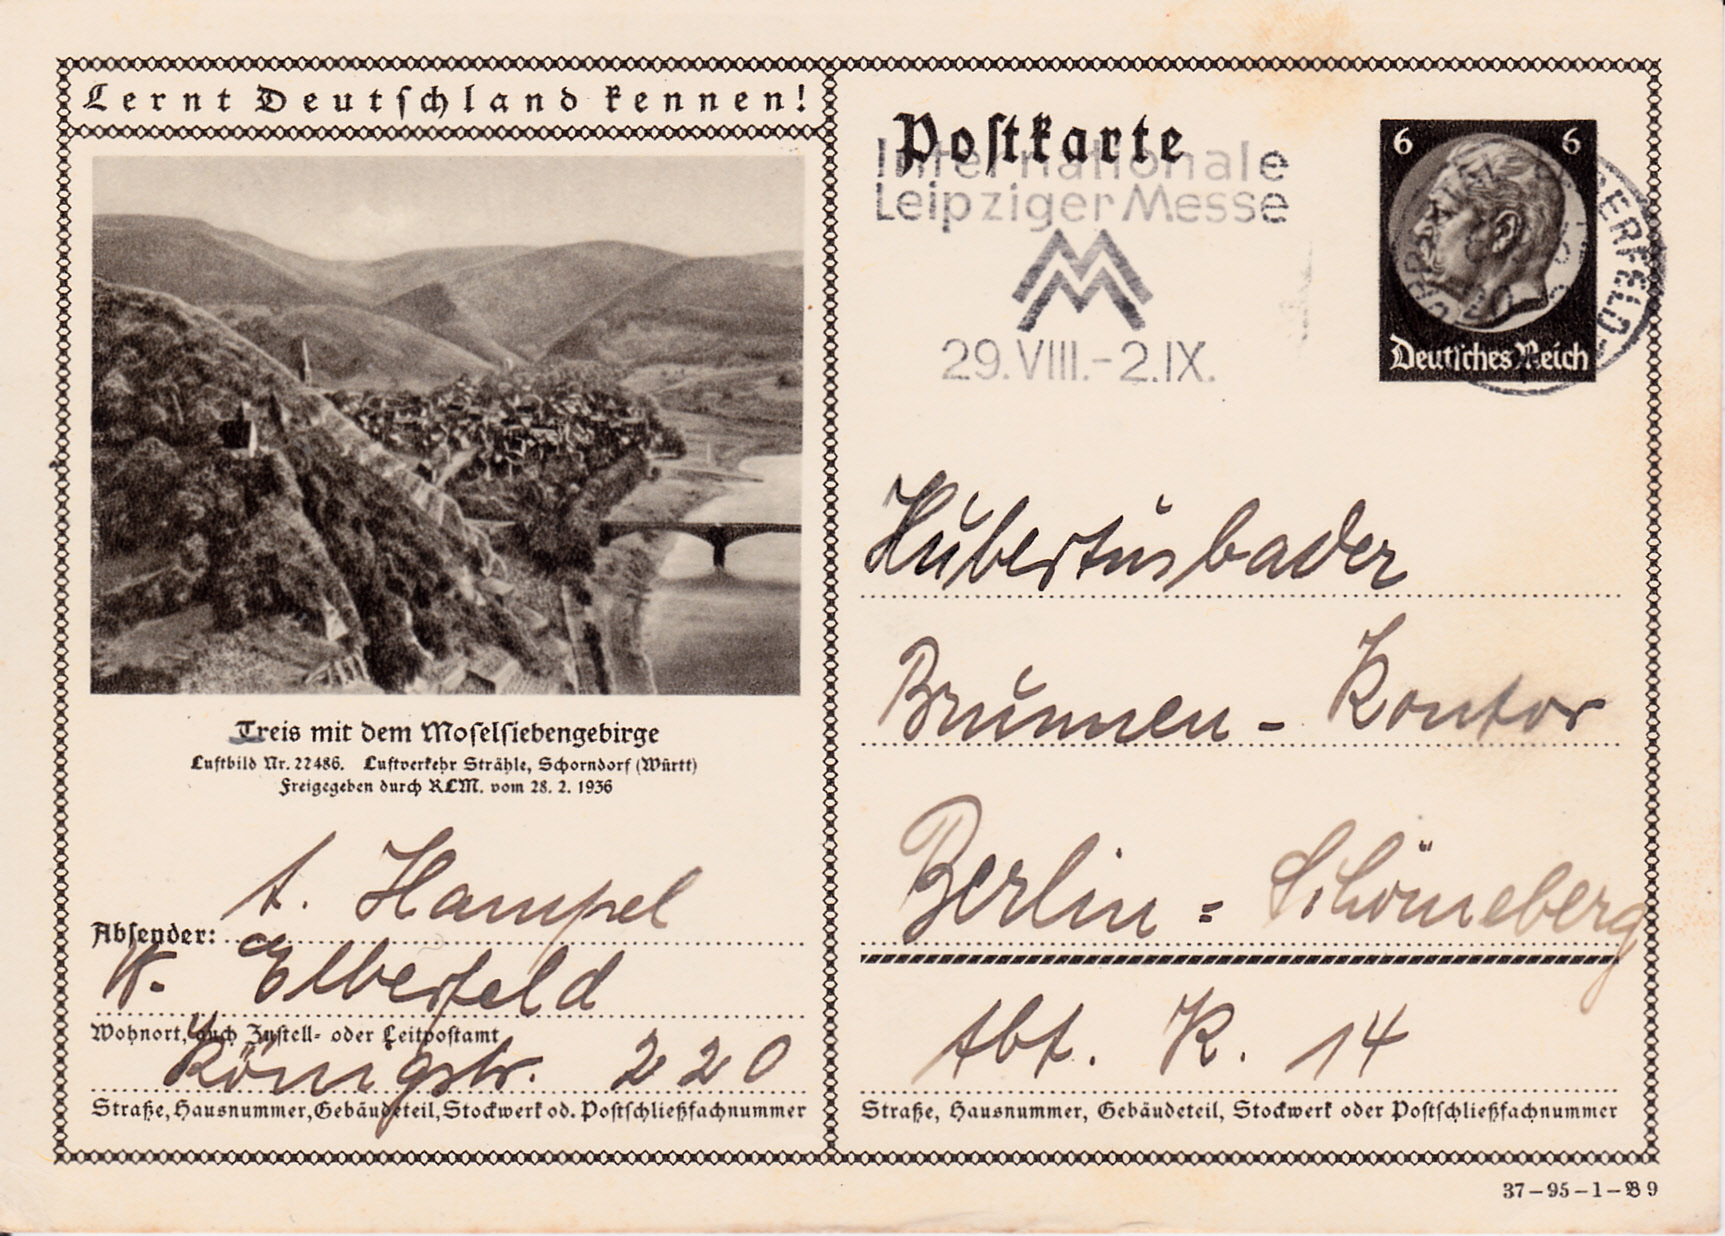 Lernt Deutschland kennen!
Treis mit dem Moselsiebengebirge
Luftbild Nr. 22486. Luftverkehr Strähle, Schorndorf (Württ)
Freigegeben durch RLM. vom 28. 2. 1936
Absender: A. Hampel
W. Elberfeld
Wohnort, auch Zustell- oder Leitpostamt
Königstr. 220
Straße, Hausnummer, Gebäudeteil, Stockwerk od. Postschließfachnummer
Postkarte
Internationale
Leipziger Messe
29.VIII.-2.IX.
6 6
Deutsches Reich
Hubertusbader
Brunnen-Kontor
Berlin=Schöneberg
Abt. K. 14
Straße, Hausnummer, Gebäudeteil, Stockwerk oder Postschließfachnummer
37-95-1-B9